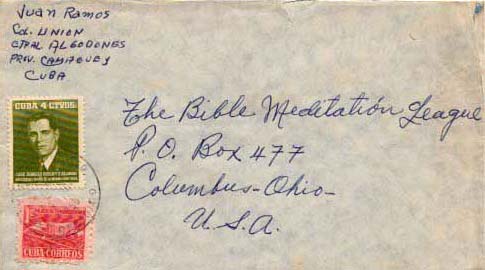 Juan Ramos
Col. UNION
CTRAL ALGODONES
PROV. CAMAGUEY
CUBA
The Bible Meditatión League
P. O. Box 477
Columbus-Ohio-
U.S.A.
CUBA 4 CTVOS.
1
CUBA-CORREOS